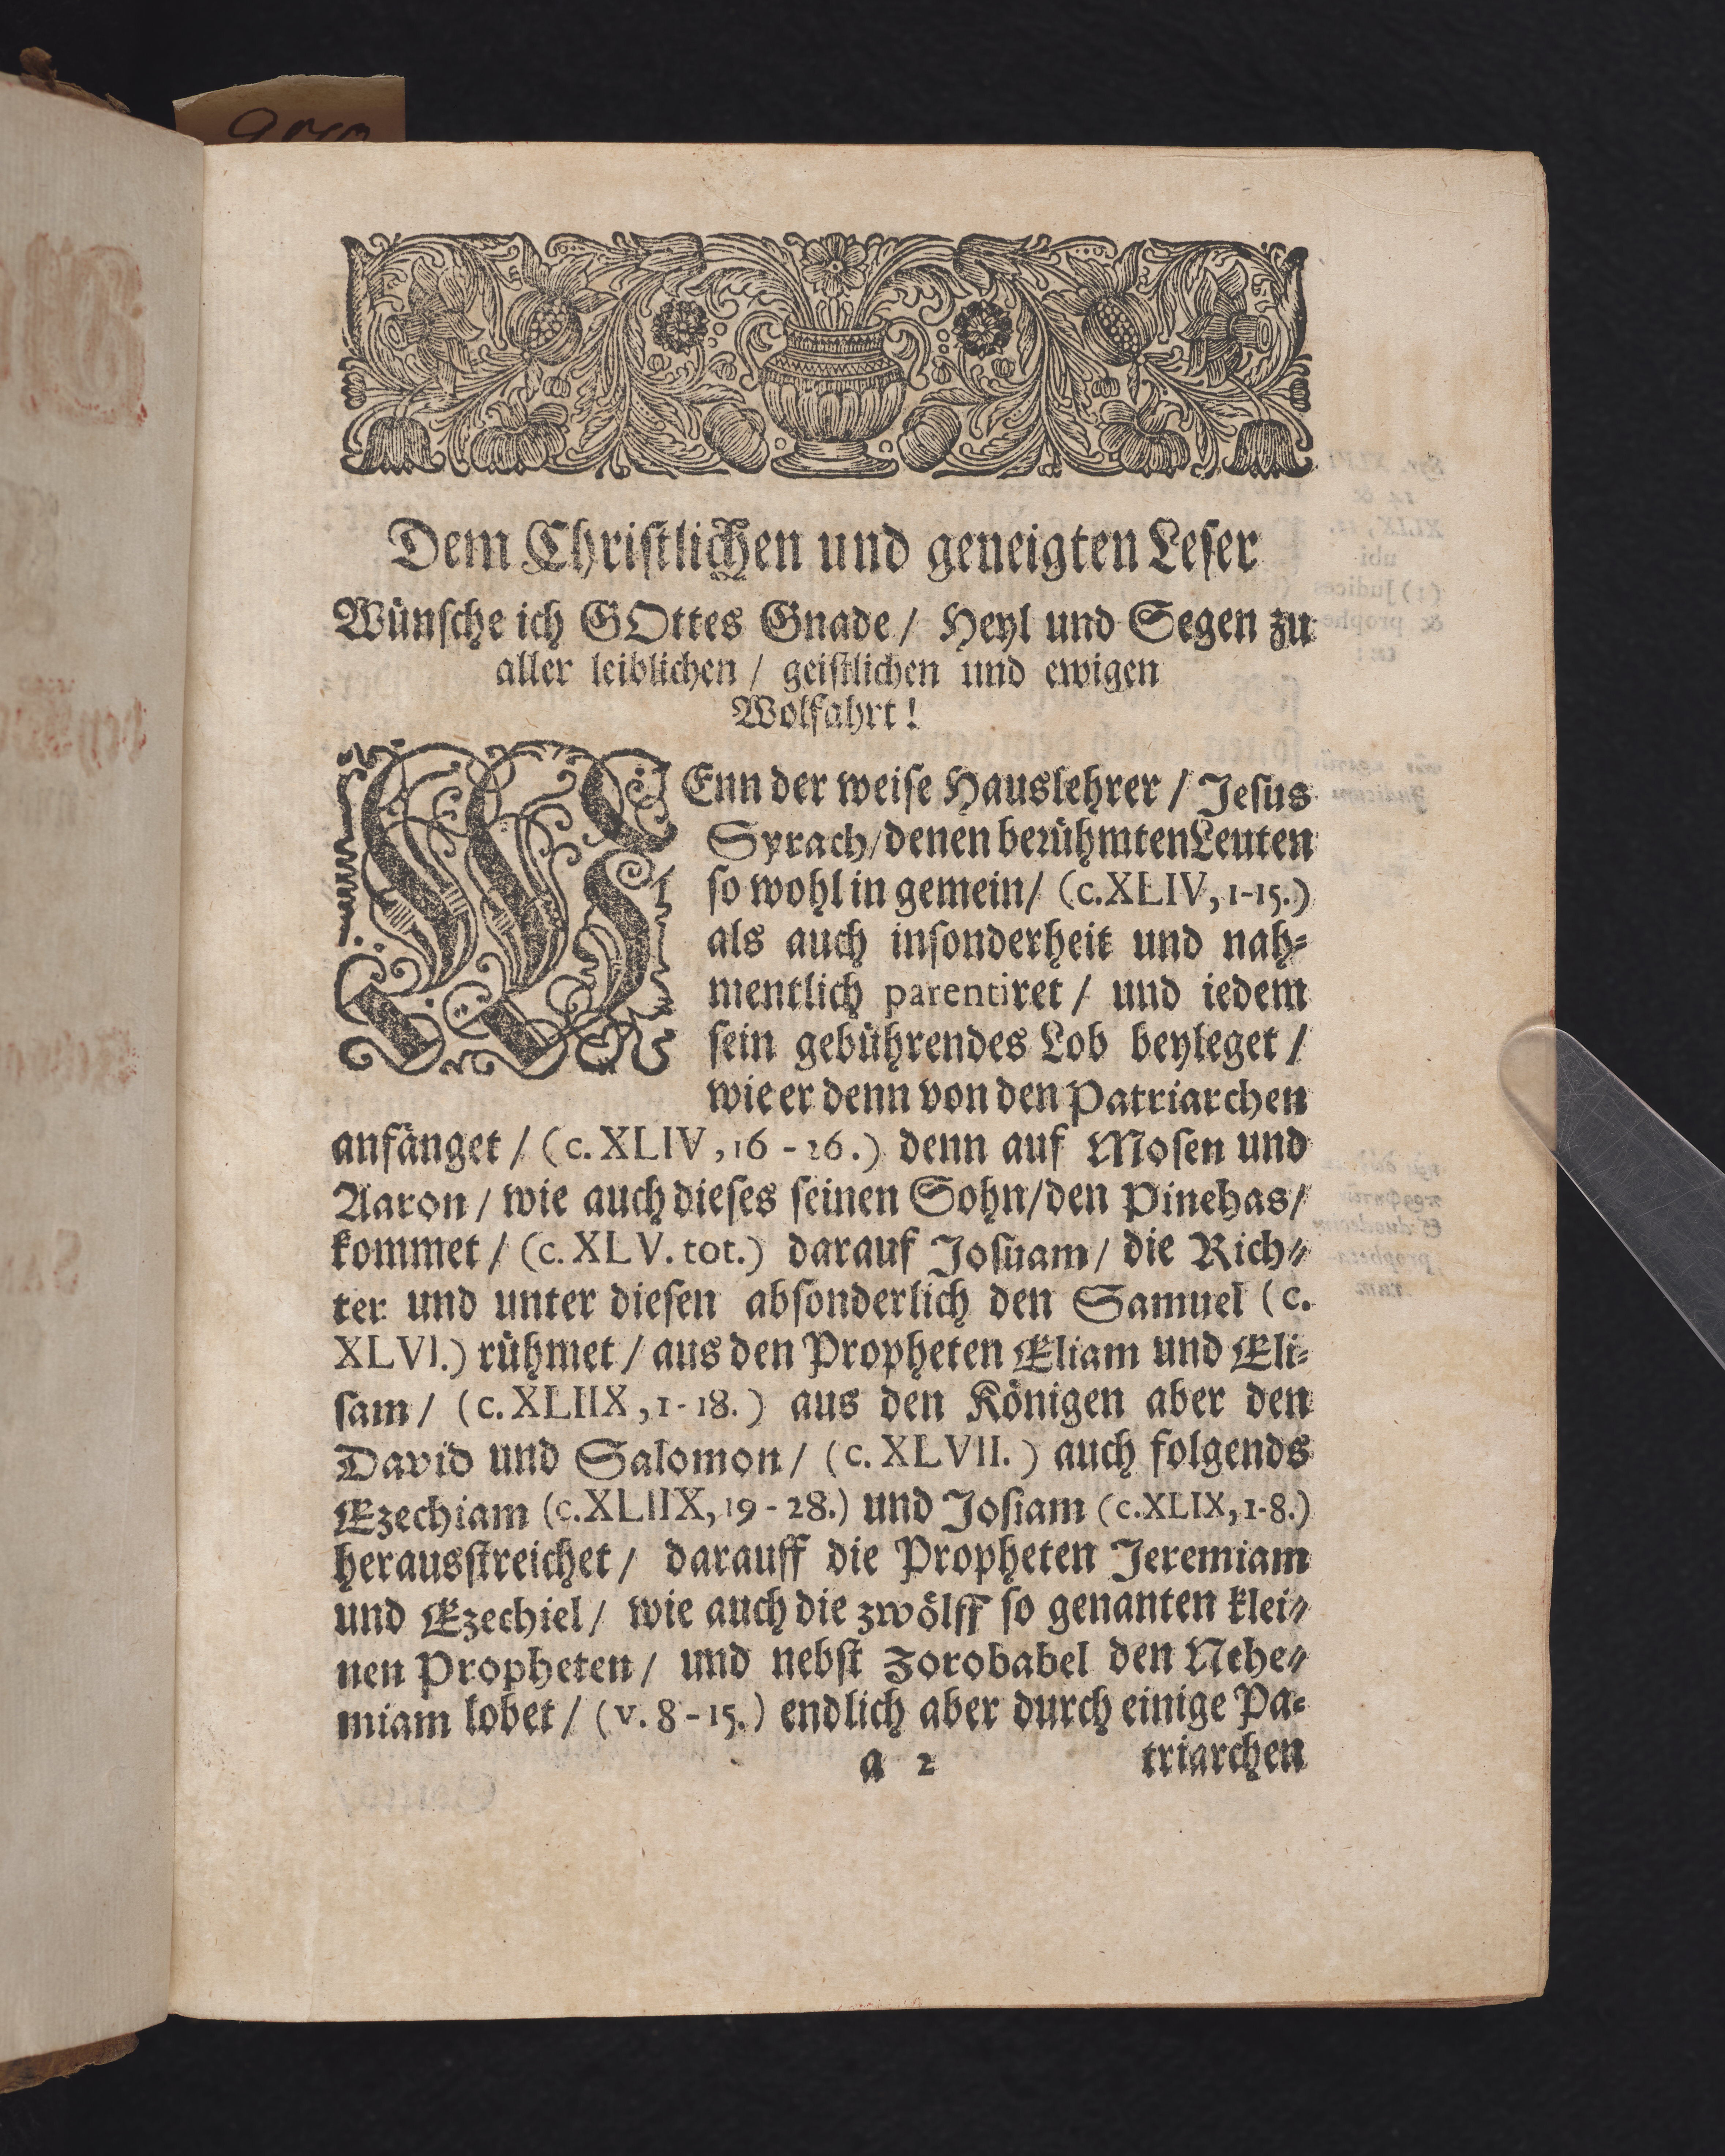 Dem Christlichen und geneigten Leser
Wünsche ich GOttes Gnade / Heyl und Segen zu
aller leiblichen / geistlichen und ewigen
Wolfahrt!
WEnn der weise Hauslehrer / Jesus
Syrach / denen berühmten Leuten
so wohl in gemein / (c. XLIV, 1-15.)
als auch insonderheit und nah=
mentlich parentiret / und iedem
sein gebührendes Lob beyleget /
wie er denn von den Patriarchen
anfänget / (c. XLIV, 16 - 26.) denn auf Mosen und
Aaron / wie auch dieses seinen Sohn / den Pinehas /
kommet / (c. XLV. tot.) darauf Josuam / die Rich=
ter und unter diesen absonderlich den Samuel (c.
XLVI.) rühmet / aus den Propheten Eliam und Eli=
sam / (c. XLIIX, 1-18.) aus den Königen aber den
David und Salomon / (c. XLVII.) auch folgends
Ezechiam (c. XLIIX, 19 - 28.) und Josiam (c. XLIX, 1-8.)
herausstreichet / darauff die Propheten Jeremiam
und Ezechiel / wie auch die zwölff so genanten klei=
nen Propheten / und nebst Zorobabel den Nehe=
miam lobet / (v. 8 - 15.) endlich aber durch einige Pa=
a 2 triarchen